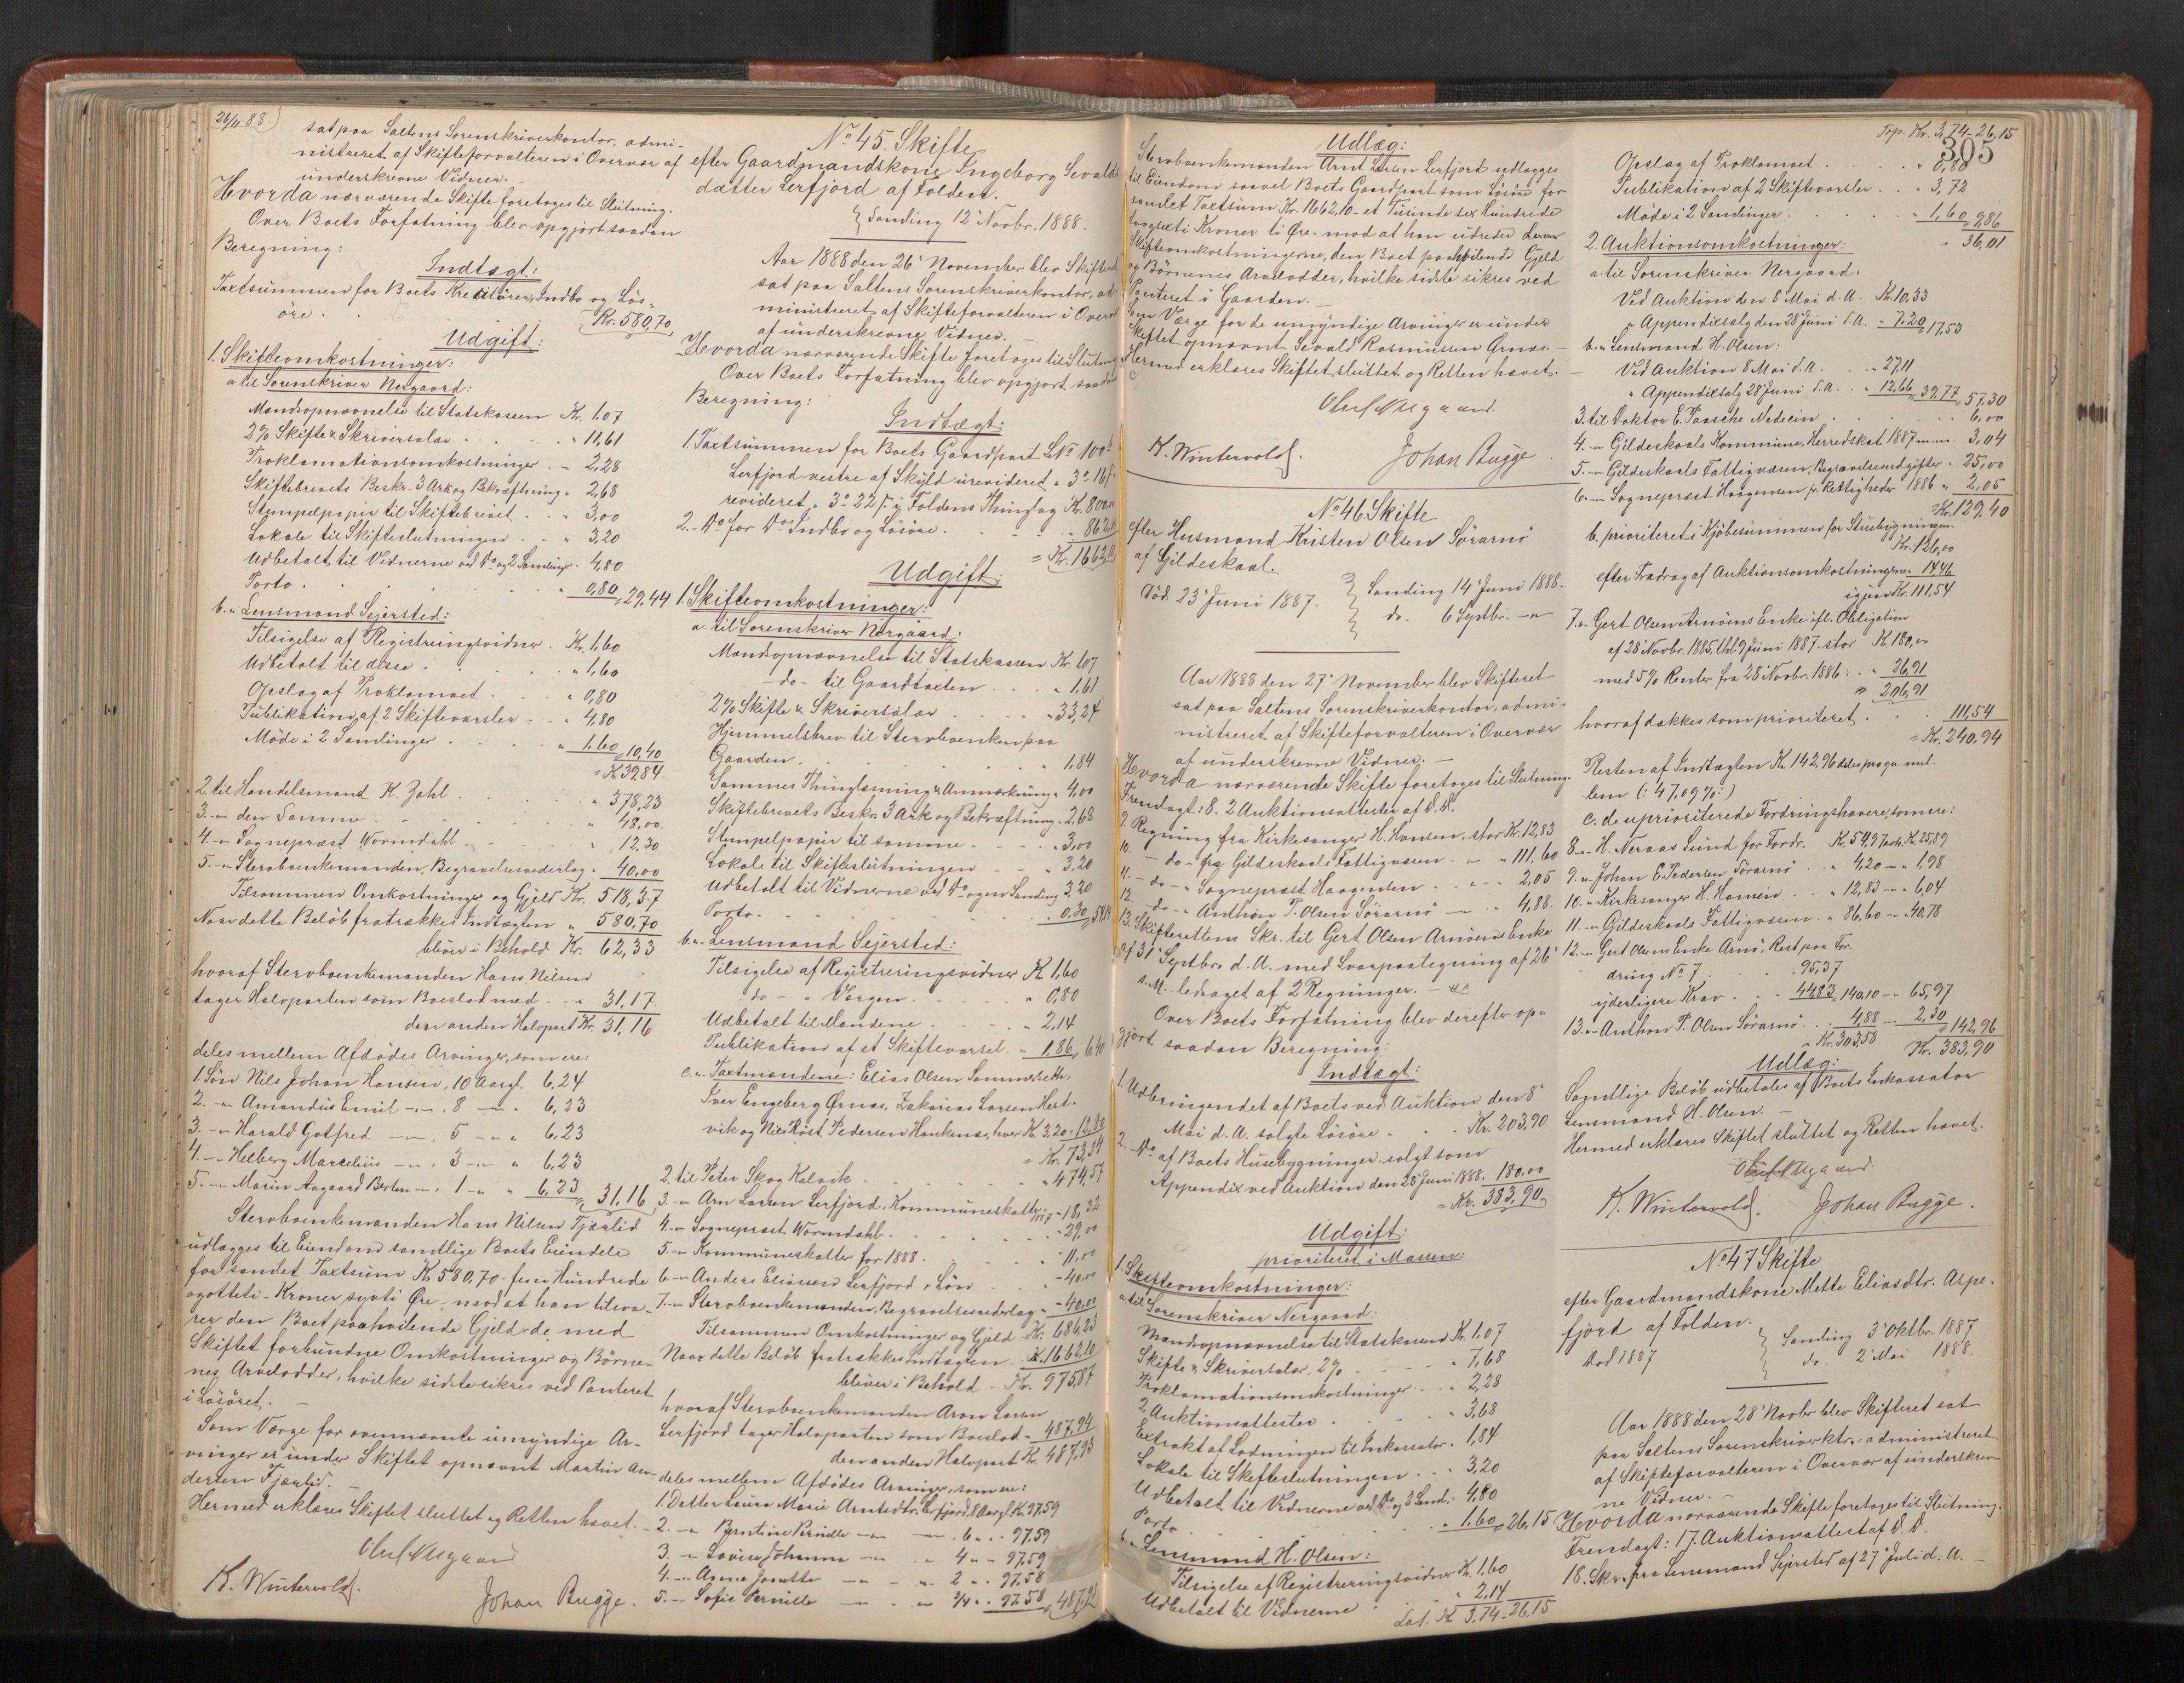 26/11 88
sat paa Saltens Sorenskriverkontor, admi-
nistreret af Skifteforvalteren i Overvær af
underskrevne Vidner.-
Hvorda nærværende Skifte foretoges til Slutning.
Over Boets Forfatning blev opgjort saadan
Beregning:
Indtægt:
Taxtsummen for Boets Kreaturer, Indbo og Lös-
öre . Kr. 580,70
Udgift:
1. Skifteomkostninger:
a. til Sorenskriver Nergaard:
Mandsopnævnelse til Statskassen Kr. 1,07
2% Skifte & Skriversalær . . . " 11,61
Proklamationsomkostninger . " 2,28
Skiftebrevets Beskr. 3 Ark og Bekræftning " 2,68
Stempelpapir til Skiftebrevet . . " 3,00
Lokale til Skifteslutningen . . " 3,20
Udbetalt til Vidnerne ved Do og 2 Samlinger . 4,80
Porto . . . " 0,80 = 29,44
b. " Lensmand Sejersted:
Tilsigelse af Registreringsvidner . Kr. 1,60
Udbetalt til disse . . . " 1,60
Opslag af Proklamaet . . . " 0,80
Publikation af 2 Skiftevarsler . . " 4,80
Möde i 2 Samlinger . . " 1,60 10,40
= Kr 39,84
2. til Handelsmand K. Zahl . . . " 378,23
3. " den Samme . . . " 48,00
4. " Sognepræst Wormdahl . . " 12,30
5. " Stervboenkemanden, Begravelsesvederlag . 40,00
Tilsammen Omkostninger og Gjeld Kr. 518,37
Naar dette Belöb fratrækkes Indtægten " 580,70
bliver i Behold Kr. 62,33
hvoraf Stervboenkemanden Hans Nilsen
tager Halvparten som Boeslod med . " 31,17
den anden Halvpart Kr. 31,16
deles mellem Afdödes Arvinger, som ere:
1. Sön Nils Johan Hansen, 10 Aargl. 6,24
2. " Amandus Emil — " — 8 — " 6,23
3. " Harald Gotfred — " — 5 — " 6,23
4. " Helberg Marcelius — " — 3 — " 6,23
5. " Marin Aagaard Berten — " 1 — " 6,23 31,16
Stervboenkemanden Hans Nilsen Fjærlid
udlægges til Eiendom samtlige Boets Eiendele
for samlet Taxtsum Kr. 580,70 - fem Hundrede
ogotteti - Kroner, syvti Øre, mod at han tilsva-
rer den Boet paahvilende Gjeld, de med
Skiftet forbundne Omkostninger og Börne-
nes Arvelodder, hvilke sidste sikres ved Panteret
i Lösöret.-
Som Værge for ovennævnte umyndige Ar-
vinger er under Skiftet opnævnt Martin An-
dersen Fjærlid.-
Hermed erklæres Skiftet sluttet og Retten hævet.-
K. Wintervold.
Johan Bugge.
No 45. Skifte
efter Gaardmandskone Ingeborg Sevalds
datter Lerfjord af Folden.
Samling 12' Novbr. 1888.
Aar 1888 den 26' November blev Skifteret
sat paa Saltens Sorenskriverkontor, ad
ministreret af Skifteforvalteren i Overvær
af underskrevne Vidner.-
Hvorda nærværende Skifte foretoges til Slutning
Over Boets Forfatning blev opgjort saadan
Beregning:
Indtægt:
1. Taxtsummen for Boets Gaardpart LNo 100b
Lerfjord vestre af Skyld urevideret
revideret i Foldens Thinglag Kr. 800,00
2. Do for Do Indbo og Lösöre . . " 862,10
= Kr. 1662,10
Udgift:
1. Skifteomkostninger:
a. til Sorenskriver Nergaard:
Mandsopnævnelse til Statskassen Kr. 1,07
— do — til Gaardtaxten . . . " 1,61
2% Skifte & Skriversalær . . . " 33,24
Hjemmelsbrev til Stervboenken paa
Gaarden . . . " 1,84
Sammes Thinglæsning & Anmærkning . 4,00
Skiftebrevets Beskr. 3 Ark og Bekræftning . 2,68
Stempelpapir til samme . . . " 3,00
Lokale til Skifteslutningen . . 3,20
Udbetalt til Vidnerne ved Do og en Samling 3,20
Porto . . . " 0,30
b. " Lensmand Sejersted:
Tilsigelse af Registreringsvidner Kr 1,60
do — " Værgen . . . " 0,80
Udbetalt til Mændene . . . " 2,14
Publikation af et Skiftevarsel . " 1,86 = 6,40
c. " Taxtmændene: Elias Olsen Sommerseth,
Iver Engeberg Ørnes, Zakarias Larsen Hert-
vik og Nils Röst Pedersen Haukenes, hver Kr. 3,20 = 12,80
= Kr. 73,34
2. til Peter Skog Kalvik . . . " 474,57
3. " Arn Larsen Lerfjord, Kommuneskatter 1887 - 18,32
4. " Sognepræst Wormdahl . . . " 29,00
5. " Kommuneskatter for 1888 . . . " 11,00
6. " Anders Eliassen Lerfjord, Lön . . " 40,00
7. " Stervboenkemanden, Begravelsesvederlag " 40,00
Tilsammen Omkostninger og Gjeld Kr. 686,23
Naar dette Belöb fratrækkes Indtægten . Kr. 1662,10
bliver i Behold . Kr. 975,87
hvoraf Stervboenkemanden Aron Larsen
Lerfjord tager Halvparten som Boeslod . 487,94
den anden Halvpart Kr. 487,93
deles mellem Afdödes Arvinger, som ere:
1. Datter Laura Marie Arntsdtr. Lerfjord, 8 Aargl. Kr. 97,59
2. " Berntine Pernille — " — 6 " " 97,59
3. " Lovise Johanna — " " 4 " " 97,59
4. " Anna Jonette — " " 2 " " 97,58
5. " Sofie Pernille — " " 3/4 " " 97,58 = 487,93
Udlæg:
Stervboenkemanden Arnt Larsen Lerfjord udlægges
til Eiendom saavel Boets Gaardpart som Lösöre for
samlet Taxtsum Kr. 1662,10 - et Tusinde sex Hundrede
togsexti Kroner ti Øre - mod at han udreder
Skifteomkostningerne, den Boet paahvilende Gjeld
og Börnenes Arvelodder, hvilke sidste sikres ved
Panteret i Gaarden.-
Som Værge for de umyndige Arvinger er under
Skiftet opnævnt Sevald Rasmussen Ørnes.-
Hermed erklæres Skiftet sluttet og Retten hævet.-
K. Wintervold.
Johan Bugge
No 46 Skifte
efter Husmand Kristen Olsen Sörarnö
af Gildeskaal.
Död 23' Juni 1887.
Samling 14' Juni 1888.
do. 6 Septbr. — "
Aar 1888 den 27' November blev Skifteret
sat paa Saltens Sorenskriverkontor, admi-
nistreret af Skifteforvalteren i Overvær
af underskrevne Vidner.-
Hvorda nærværende Skifte foretoges til Slutning.
Fremlagt: 8. 2 Auktionsattester af d. D.
9. Regning fra Kirkesanger H. Hansen, stor Kr. 12,83
10. — do — fra Gildeskaals Fattigvæsen . — " 111,60
11. — do — " Sognepræst Haagensen . . " — 2,05
12. — do — " Anthon P. Olsen Sörarnö — " 4,88
13. Skifterettens Skr. til Gert Olsen Arnöens Enke
af 31' Septbr. d. A. med Svarpaategning af 26'
s. M. ledsaget af 2 Regninger.-
Over Boets Forfatning blev derefter op-
gjort saadan Beregning:
Indtægt:
1. Udbringendet af Boets ved Auktion den 8'
Mai d. A. solgte Lösöre . . . Kr. 203,90
2. Do af Boets Husebygninger solgt som
Appendix ved Auktion den 28' Juni 1888. 180,00
= Kr. 383,90
Udgift:
prioriteret i Massen:
1. Skifteomkostninger:
a til Sorenskriver Nergaard:
Mandsopnævnelse til Statskassen Kr. 1,07
Skifte & Skriversalær, 2% . . . " 7,68
Proklamationsomkostninger . . . 2,28
2 Auktionsattester . . . " 3,68
Extrakt af Lodningen til Inkassator . 1,84
Lokale til Skifteslutningen . . . 3,20
Udbetalt til Vidnerne ved Do og 2 Saml. . 4,80
Porto . . . " 1,60 = 26,15
b. " Lensmand H. Olsen:
Tilsigelse af Registreringsvidner Kr. 1,60
Udbetalt til Vidnerne . " 2,14
Lat. Kr 3,74 - 26,15
Trp. Kr. 3,74 - 26,15
305
Opslag af Proklamaet . . . " 0,80
Publikation af 2 Skiftevarsler . . " 3,72
Möde i 2 Samlinger . . . " 1,60 = 9,86
= 36,01
2. Auktionsomkostninger:
a. til Sorenskriver Nergaard:
Ved Auktion den 8 Mai d. A. Kr. 10,33
" Appendixsalg den 28' Juni s. A. - 7,20 17,53
b. " Lensmand H. Olsen:
Ved Auktion 8 Mai d. A. . . 27,11
" Appendixsalg 28' Juni s. A. . . 12,66 = 39,77 = 57,30
3. til Doktor E. Paasche Medicin . . . 6,00
4. " Gildeskaals Kommune, Herredskat 1887 m. m. 3,04
5. " Gildeskaals Fattigvæsen, Begravelsesudgifter . 25,00
6. " Sognepræst Haagensen for Rettigheder 1886 " 2,05
Kr. 129,40
b. prioriteret i Kjöbesummen for Stuebygningen
Kr. 126,00
efter Fradrag af Auktionsomkostningerne 14,46
igjen Kr. 111,54
7. " Gert Olsen Arnöens Enke ifl. Obligation
af 28' Novbr. 1885, thl. 9 Juni 1887, stor Kr. 180,00
med 5% Renter fra 28' Novbr. 1886 . " 26,91
" 206,91
hvoraf dækkes som prioriteret . . 111,54
= Kr. 240,94
Resten af Indtægten Kr. 142,96 deles pro qu. mel-
lem (: 47,09%:)
c. de uprioriterede Fordringshavere, som ere:
8. " H. Neraas Sund for Fordr. Kr. 54,97 Kr. 25,89
9. " Johan E. Pedersen Sörarnö . . " 4,20 — " 1,98
10. " Kirkesanger H. Hansen . . " 12,83 — " 6,04
11. " Gildeskaals Fattigvæsen . " 86,60 — " 40,78
12. " Gert Olsens Enke Arnö, Rest paa For-
dring No 7 . . . 95,37
yderligere Krav . . . 44,83 140,10 — " 65,97
13. " Anthon P. Olsen Sörarnö . . 4,88 — 2,30 = 142,96
" Kr. 303,58 Kr. 383,90
Udlæg:
Samtlige Belöb udbetales af Boets Inkassator
Lensmand H. Olsen.-
Hermed erklæres Skiftet sluttet og Retten hævet.
K. Wintervold.
Johan Bugge.
No 47 Skifte
efter Gaardmandskone Mette Eliasdtr. Aspe-
fjord af Folden.
Död 1887
Samling 3' Oktbr. 1887
do. 2' Mai 1888.
Aar 1888 den 28' Novbr blev Skifteret sat
paa Saltens Sorenskriverktr., administreret
af Skifteforvalteren i Overvær af underskrev-
ne Vidner.-
Hvorda nærværende Skifte foretoges til Slutning.
Fremlagt: 17. Auktionsattest af d. D.
18. Skr. fra Lensmand Sejersted af 27' Juli d. A.-